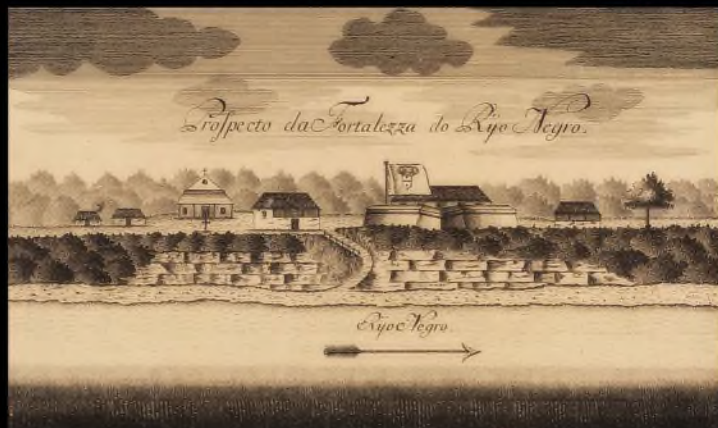 Proſpecto da Fortalezza do Rÿo Negro.
Rÿo Negro.